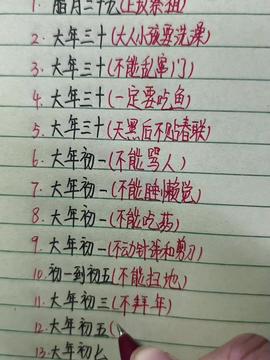 1. 腊月三十(上坟祭祖)
2. 大年三十(大人小孩要洗澡)
3. 大年三十(不能乱窜门)
4. 大年三十(一定要吃鱼)
5. 大年三十(天黑后不贴春联)
6. 大年初一(不能骂人)
7. 大年初一(不能睡懒觉)
8. 大年初一(不能吃药)
9. 大年初一(不动针线和剪刀)
10. 初一到初五(不能扫地)
11. 大年初三(不拜年)
12. 大年初五(
13. 大年初七